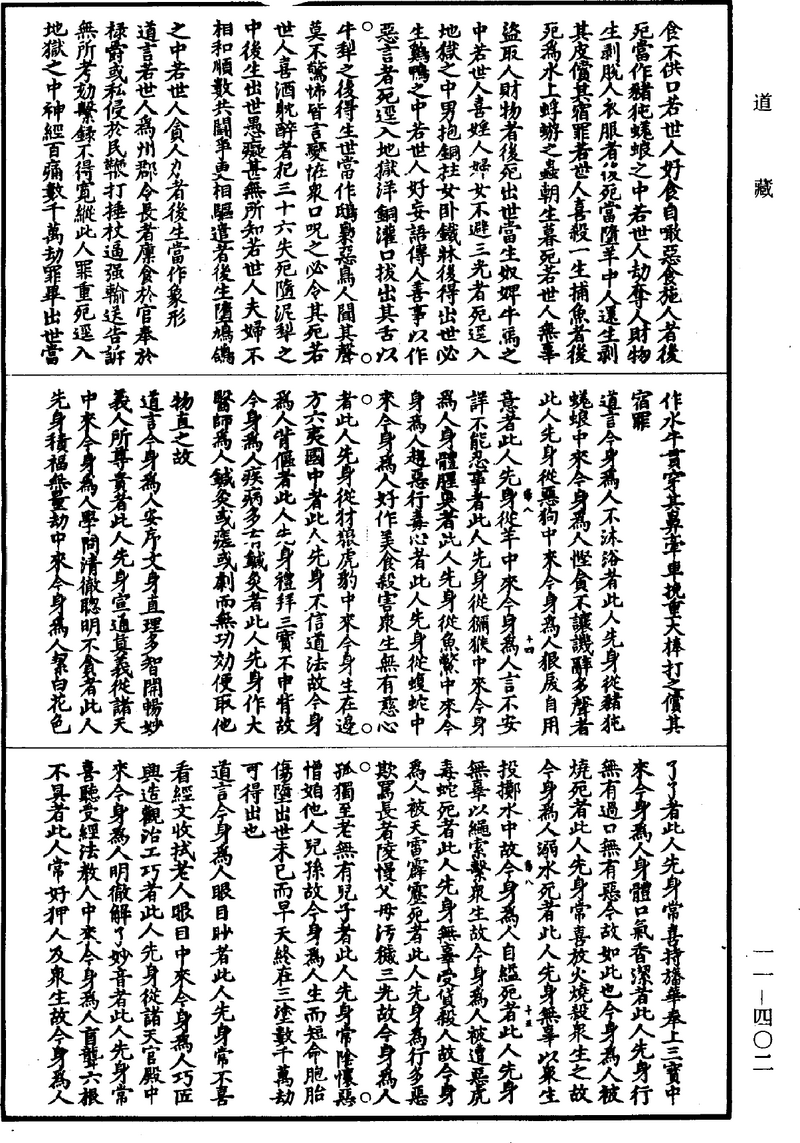 道藏
食不供口若世人好食自噉惡食施人者後
死當作豬狏蜣蜋之中若世人劫奪人財物
生剥脫人衣服者後死當隨羊中人還生剥
其皮償其宿罪若世人喜殺一生捕魚者後
死爲水上蜉蝣之蟲朝生暮死若世人無辜
盜取人財物者後死出世當生奴婢牛馬之
中若世人喜婬人婦女不避三光者死逕入
地獄之中男抱銅柱女卧鐵牀後得出世必
生鷄鴨之中若世人好妄語傳人善事以作
惡言者死逕入地獄洋銅灌口拔出其舌以
牛犁之後得生世當作鴟梟惡鳥人聞其聲
莫不驚怖皆言變恠衆口呪之必令其死若
世人喜酒躭醉者犯三十六失死隨泥犁之
中後生出世愚癡甚無所知若世人夫婦不
相和順數共鬪爭更相驅遣者後生墮鳩鴿
之中若世人貪人力者後生當作象形
道言若世人爲州郡令長者廪食於官奉於
祿爵或私侵於民鞭打捶杖逼强輸送告訴
無所考劾繫錄不得寬縱此人罪重死逕入
地獄之中神經百痛數千萬劫罪畢出世當
作水牛貫穿其鼻牽車挽重大棒打之償其
宿罪
道言今身爲人不沐浴者此人先身從豬狏
蜣蜋中來今身爲人慳貪不讓譏辭多聲者
此人先身從惡狗中來今身爲人狠戾自用
意者此人先身從羊中來今身爲人言不安
詳不能忍事者此人先身從獼猴中來今身
爲人身體腥臭者此人先身從魚鱉中來今
身爲人趨惡行毒心者此人先身從蝮蛇中
來今身爲人好作美食殺害衆生無有慈心
者此人先身從豺狼虎豹中來今身生在邊
方六夷國中者此人先身不信道法故今身
爲人背傴者此人先身禮拜三寶不申背故
今身爲人疾病多舌鍼灸者此人先身作大
醫師爲人鍼灸或瘥或劇而無功効便取他
物直之故
道言今身爲人安庠文身直理多智開暢妙
義人所尊貴者此人先身宣通真義從諸天
中來今身爲人學問清徹聰明不貪者此人
先身積福無量劫中來今身爲人絜白花色
了了者此人先身常喜持旛華奉上三寶中
來今身爲人身體口氣香潔者此人先身行
無有過口無有惡今故如此也今身爲人被
燒死者此人先身常喜放火燒殺衆生之故
今身爲人溺水死者此人先身無辜以衆生
投擲水中故今身爲人自縊死者此人先身
無辜以繩索繫衆生故今身爲人被遭惡虎
毒蛇死者此人先身無辜受貨殺人故今身
爲人被天雷霹靂死者此人先身爲行多惡
欺罵長者陵慢父母汚穢三光故今身爲人
孤獨至老無有兒子者此人先身常陰懷惡
憎妬他人兒孫故今身爲人生而短命胞胎
傷墮出世未已而早夭終在三塗數千萬劫
可得出也
道言今身爲人眼目眇者此人先身常不喜
看經文收拭老人眼目中來今身爲人巧匠
興造觀治工巧者此人先身從諸天官殿中
來今身爲人明徹解了妙音者此人先身常
喜聽受經法教人中來今身爲人盲聾六根
不具者此人常好狎人及衆生故今身爲人
十四
十五
一一－四〇二